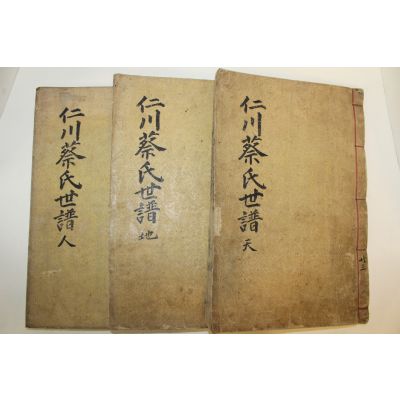 仁川蔡氏世譜 天
仁川蔡氏世譜 地
仁川蔡氏世譜 人